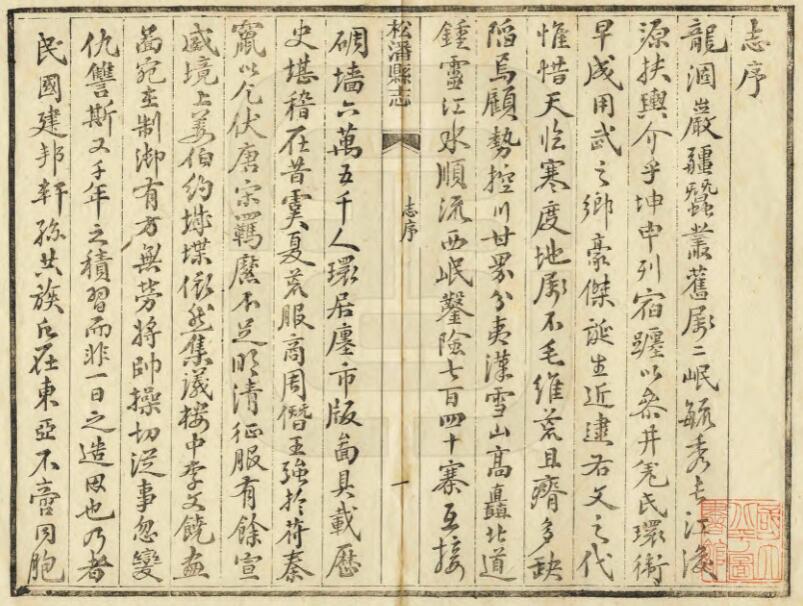 志序
龍涸嚴疆蠶叢舊屬二岷毓秀長江濬
源扶輿介乎坤申列宿躔以參井羌氏環衛
早成用武之鄉豪傑誕生近逮右文之代
惟惜天忱寒度地屬不毛維荒且瘠多缺
陷焉顧勢控川甘界分夷漢雪山高矗北道
鍾靈江水順流西岷鑿險七百四十寨互接
松潘縣志
志序
一
碉墻六萬五千人環居廛市版啚具載歷
史堪稽在昔虞夏荒服商周僭王強於苻秦
竄以乞伏唐宋羈縻不足明清征服有餘宣
威境上姜伯約城堞依然集議樓中李文饒畫
啚宛在制御有方無勞將帥操切從事忽變
仇讐斯又千年之積習而非一日之造因也乃者
民國建邦軒孫共族氐羌東亞不啻同胞
國立北平圖書館